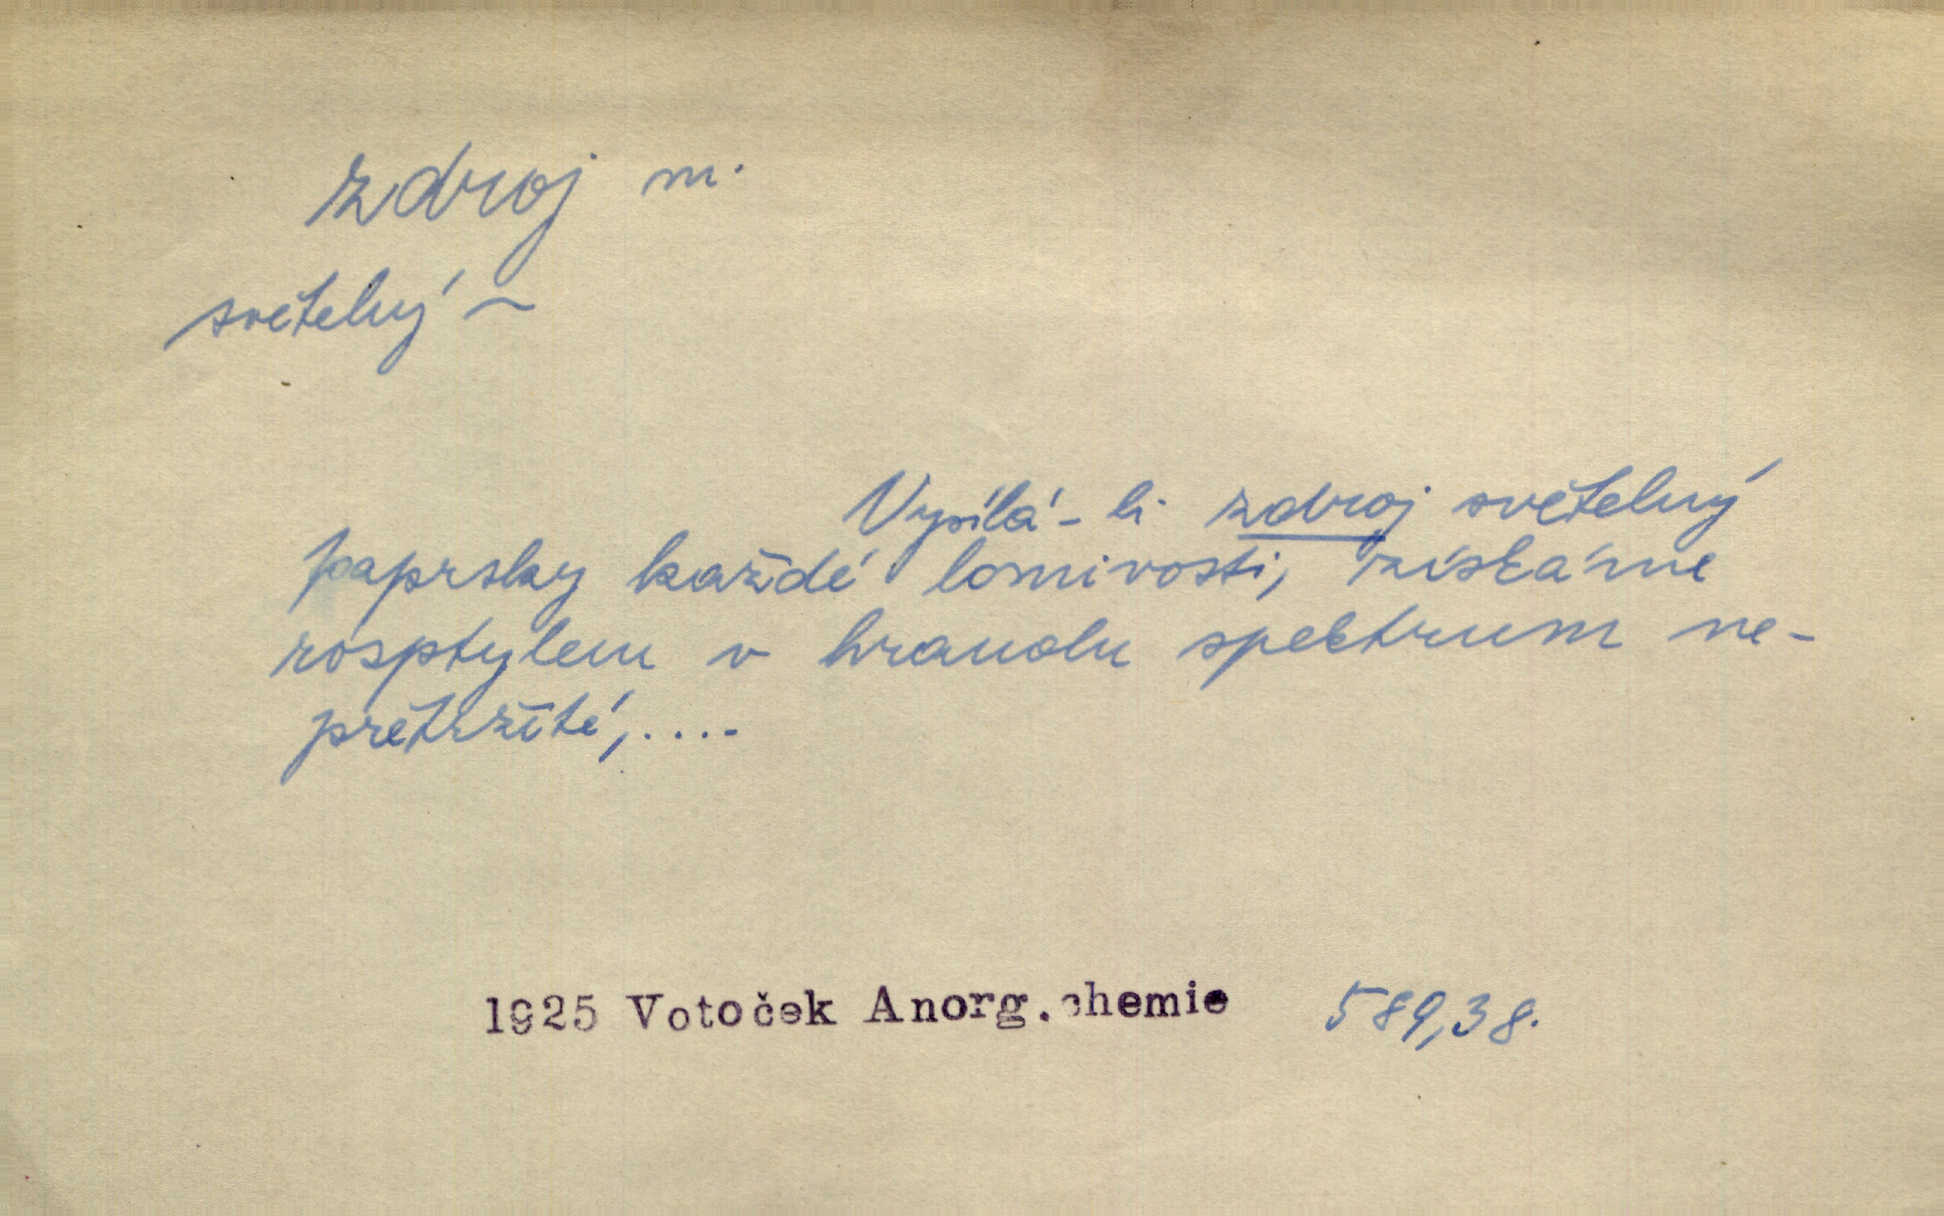 zdroj m.
světelný ~
Vysílá-li zdroj světelný
paprsky každé lomivosti, získáme
rosptylem v hranolu spektrum ne-
přetržité,....
1925 Votoček Anorg.chemie 589,38.